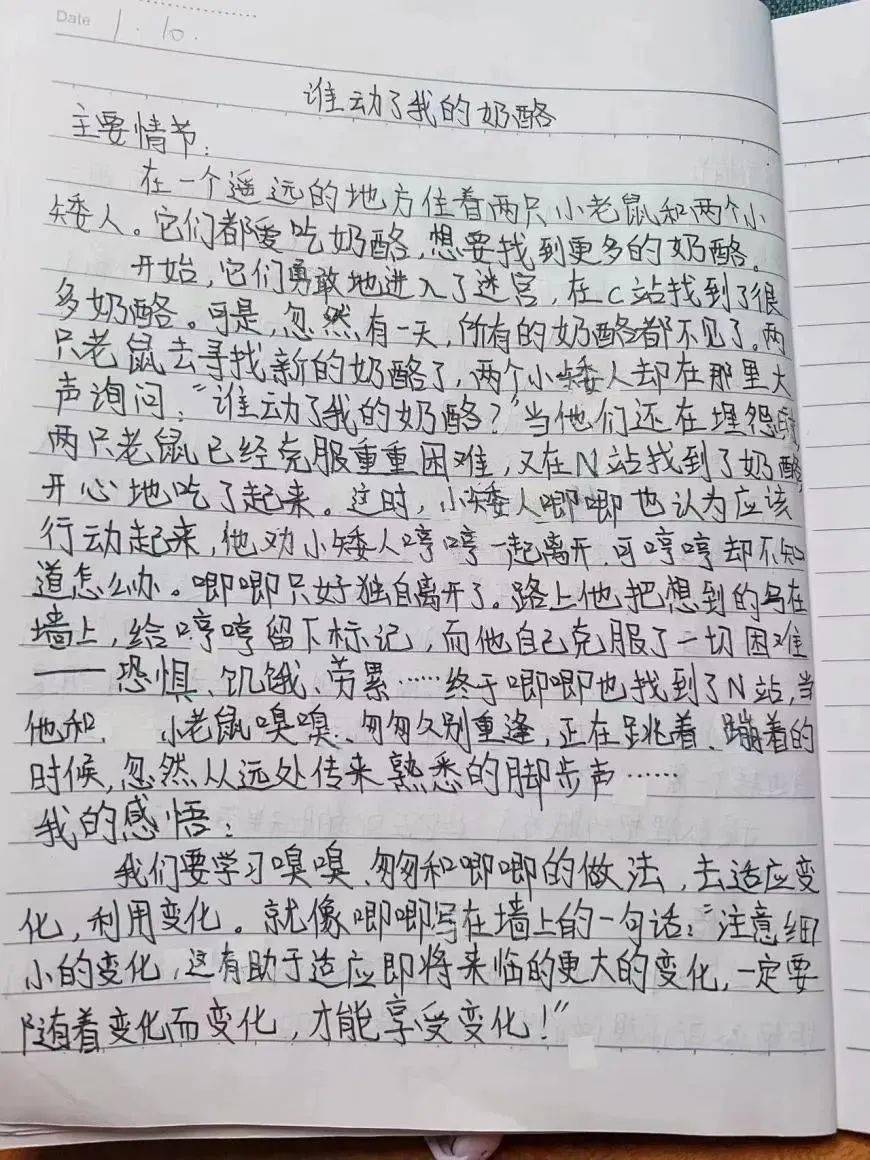 Date 1.10.
谁动了我的奶酪
主要情节：
在一个遥远的地方住着两只小老鼠和两个小
矮人。它们都爱吃奶酪，想要找到更多的奶酪。
开始，它们勇敢地进入了迷宫，在C站找到了很
多奶酪。可是，忽然有一天，所有的奶酪都不见了。两
只老鼠去寻找新的奶酪了，两个小矮人却在那里大
声询问：“谁动了我的奶酪？”当他们还在埋怨时
两只老鼠已经克服重重困难，又在N站找到了奶酪，
开心地吃了起来。这时，小矮人唧唧也认为应该
行动起来，他劝小矮人哼哼一起离开，可哼哼却不知
道怎么办。唧唧只好独自离开了。路上他把想到的写在
墙上，给哼哼留下标记，而他自己克服了一切困难
——恐惧、饥饿、劳累……终于唧唧也找到了N站，当
他和 小老鼠嗅嗅、匆匆久别重逢，正在跳着、蹦着的
时候，忽然从远处传来熟悉的脚步声……
我的感悟：
我们要学习嗅嗅、匆匆和唧唧的做法，去适应变
化，利用变化。就像唧唧写在墙上的一句话：“注意细
小的变化，这有助于适应即将来临的更大的变化，一定要
随着变化而变化，才能享受变化！”